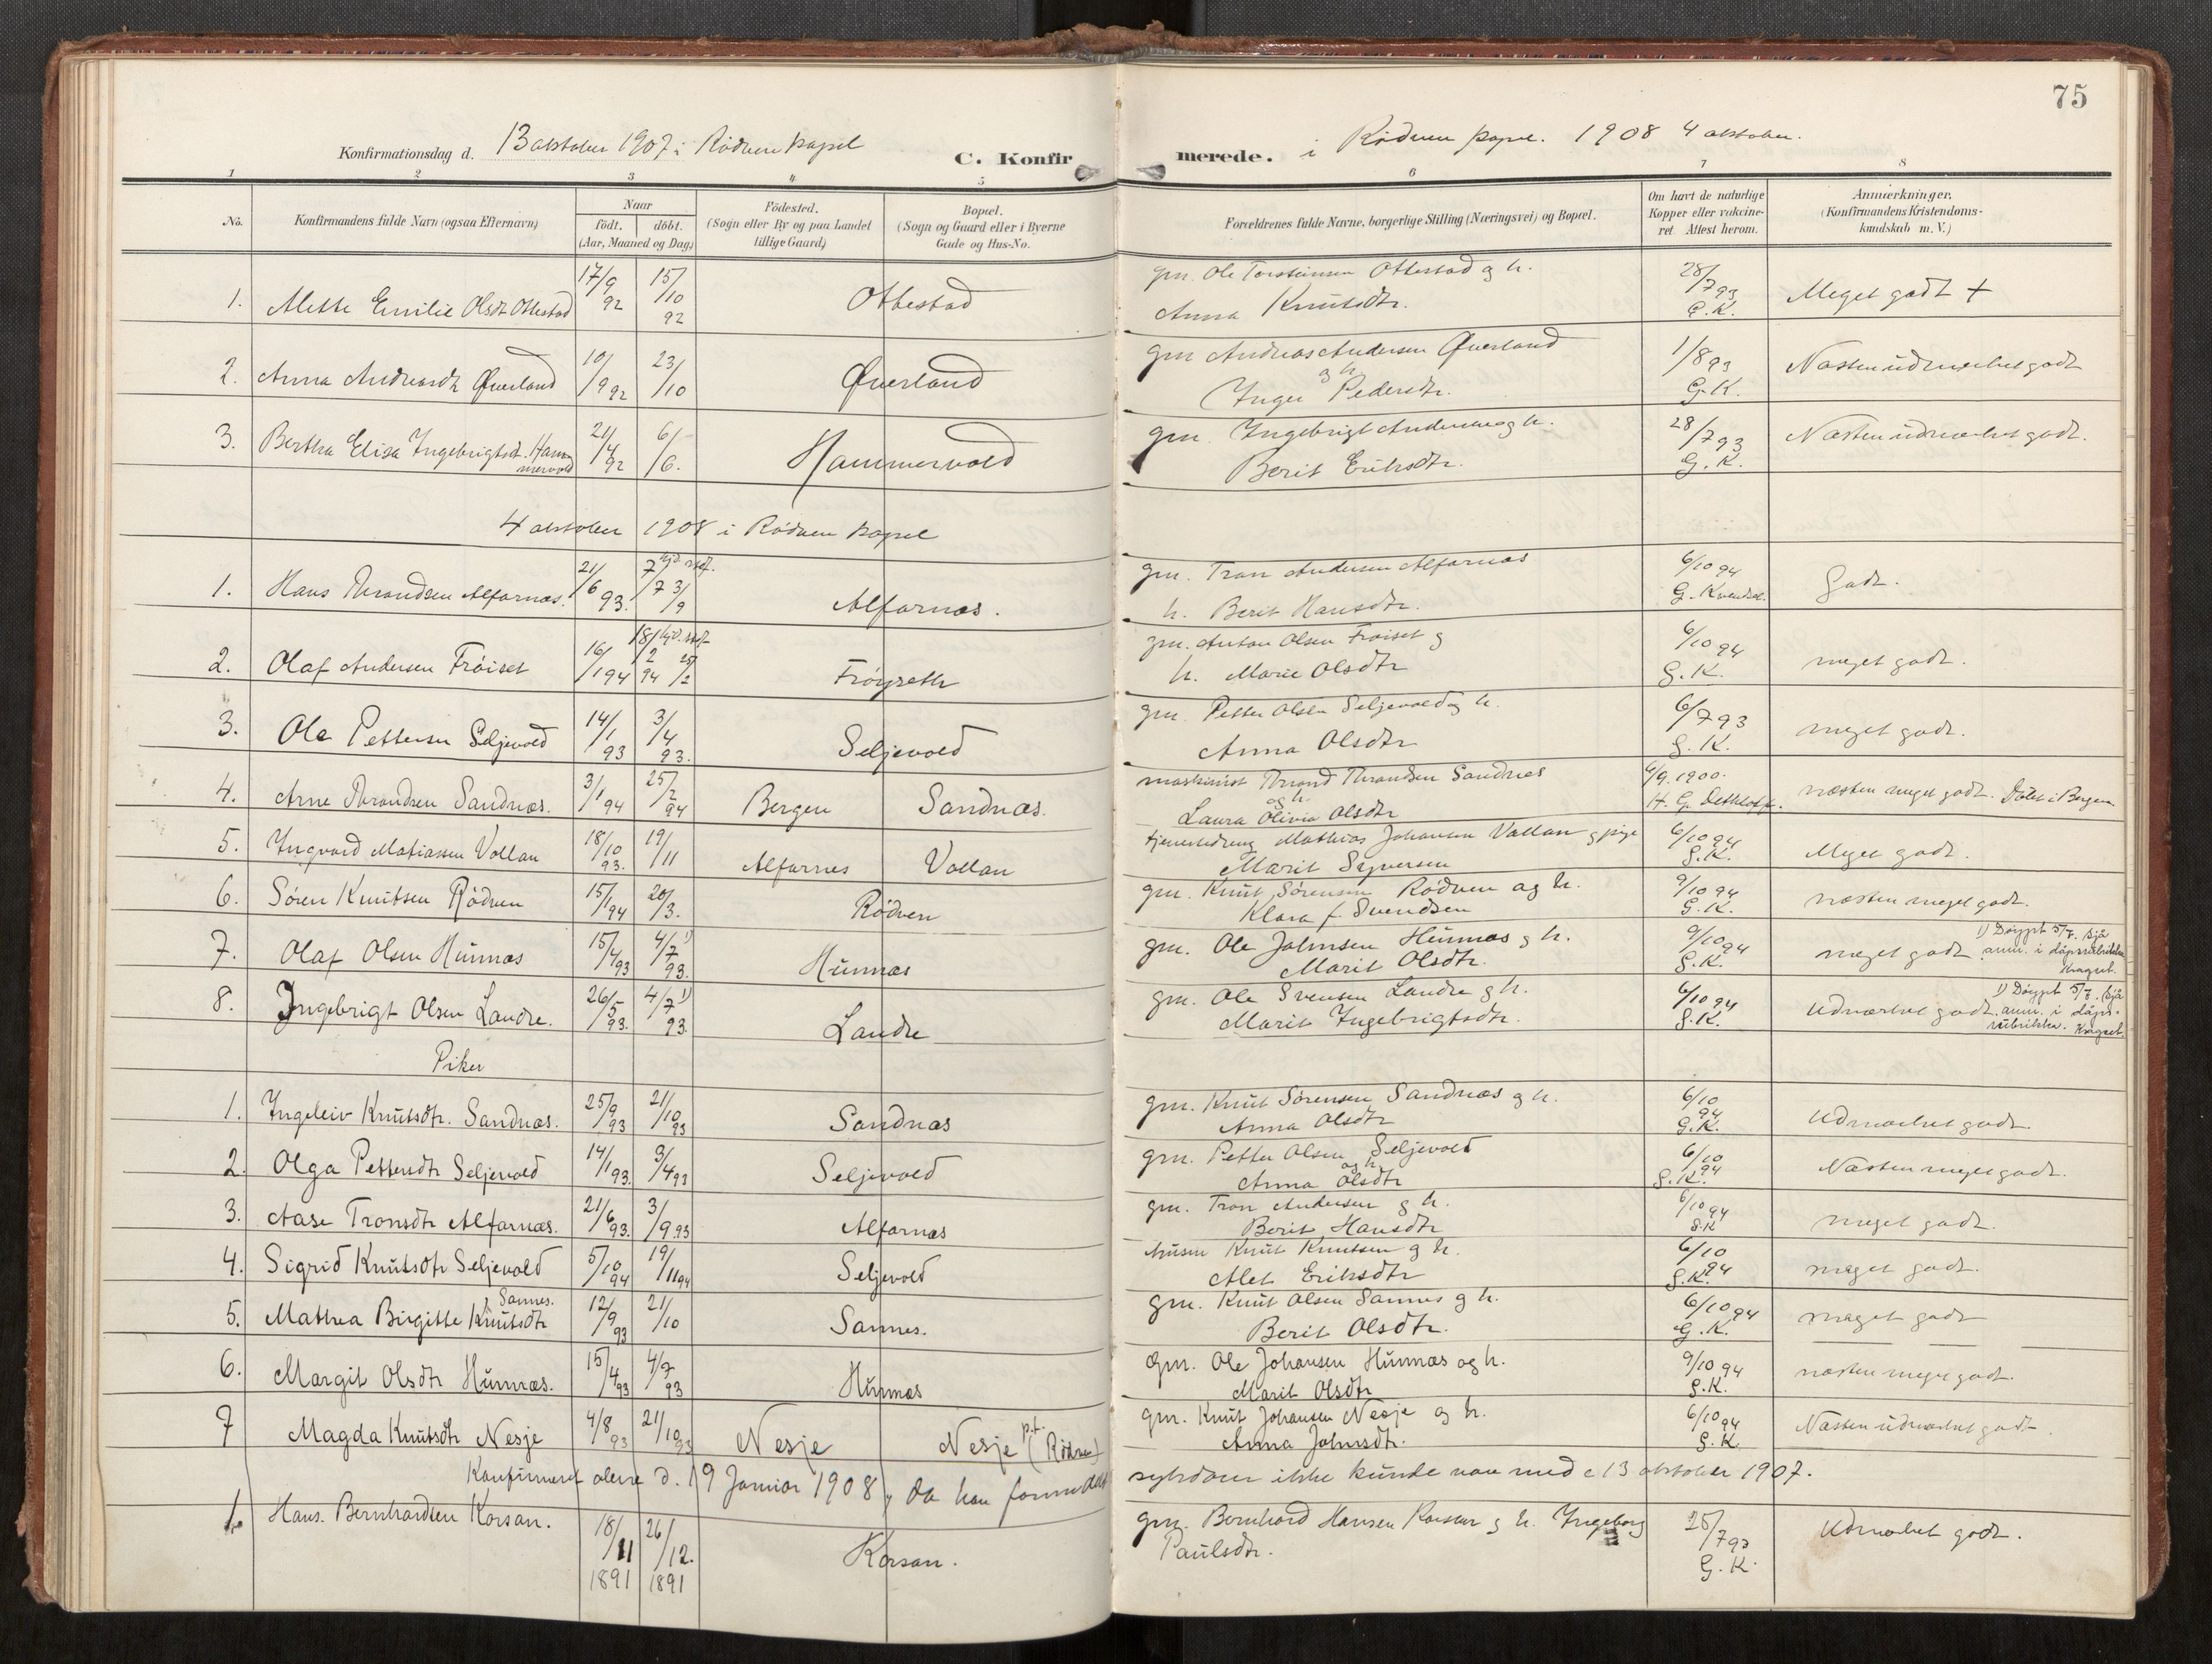 75
Konfirmationsdag d. 13 oktober 1907 i Rödven kapel C. Konfirmerede. i Rödven kapel. 1908 4 oktober.
1 2 3 4 5 6 7 8
No. Konfirmandens fulde Navn (ogsaa Efternavn) Naar födt. döbt. (Aar, Maaned og Dag) Födested. (Sogn eller By og paa Landet tillige Gaard) Bopæl. (Sogn og Gaard eller i Byerne Gade og Hus-No. Forældrenes fulde Navne, borgerlige Stilling (Næringsvei) og Bopæl. Om havt de naturlige Kopper eller vakcineret. Attest herom. Anmærkninger. (Konfirmandens Kristendomskundskab m. V.)
1. Mette Emilie Olsdt Ottestad 17/9 92 15/10 92 Ottestad gm. Ole Torsteinsen Ottestad og h. Anna Knutsdtr. 28/7 93 G.K. Meget godt +
2. Anna Andreasdt Øverland 10/9 92 23/10 Øverland gm Andreas Andersen Øverland og h. Inger Pedersdtr. 1/8 93 G.K. Næsten udmærket godt
3. Bertha Elisa Ingebrigtsdt. Hammervold 21/4 92 6/6. Hammervold gm. Ingebrigt Andersen og h. Berit Eriksdtr. 28/7 93 G.K. Næsten udmærket godt.
4 oktober 1908 i Rödven kapel
1. Hans Throndsen Alfarnæs. 21/6 93. 7/7 hjd. stdf. 3/9 Alfarnæs. gm. Tron Andersen Alfarnæs h. Berit Hansdtr. 6/10 94 G. Godt.
2. Olaf Andersen Fröiset 16/1 94 18/2 94 hjd. stdf. Fröyseth gm. Anton Olsen Fröiset og h. Marie Olsdtr 6/10 94 G.K. meget godt.
3. Ole Pettersen Seljevold 14/1 93 3/4 93. Seljevold gm. Petter Olsen Seljevold og h. Anna Olsdtr 6/7 93 G.K. meget godt.
4. Arne Throndsen Sandnæs. 3/1 94 25/2 94 Bergen Sandnæs. maskinist Thrond Throndsen Sandnæs og h. Laura Olivia Olsdtr 4/9. 1900. H. G. Dethloff. næsten meget godt. Döbt i Bergen
5. Ingvard Matiassen Vollan 18/10 93. 19/11 Alfarnes Vollan tjenestedreng Mathias Johansen Vollan og pige Marit Syversen 6/10 94 G.K. Meget godt.
6. Sören Knutsen Rödven 15/1 94 20/3. Rödven gm. Knut Sörensen Rödven og h. Klara f. Svendsen 9/10 94 G.K. næsten meget godt.
7. Olaf Olsen Hunnæs 15/4 93 4/7 1) 93. Hunnæs gm. Ole Johnsen Hunnæs og h. Marit Olsdtr. 9/10 94 G.K. meget godt. 1) Döypt 5/7. sjå anm. i dåpsrubrikka Kragset.
8. Ingebrigt Olsen Landre. 26/5 93. 4/7 1) 93. Landre gm. Ole Svensen Landre og h. Marit Ingebrigtsdtr. 6/10 94 G.K. Udmærket godt. 1) Döypt 5/7. sjå anm. i dåpsrubrikka. Kragset.
Piker
1. Ingeleiv Knutsdtr. Sandnæs. 25/9 93 21/10 93 Sandnæs gm. Knut Sörensen Sandnæs og h. Anna Olsdtr 6/10 94 G.K. Udmærket godt.
2. Olga Pettersdtr Seljevold 14/1 93. 3/4 93 Seljevold gm. Petter Olsen Seljevold og h. Anna Olsdtr 6/10 94 G.K. Næsten meget godt.
3. Aase Tronsdtr Alfarnæs. 21/6 93. 3/9.93 Alfarnæs gm. Tron Andersen og h. Berit Hansdtr 6/10 94 G.K meget godt.
4. Sigrid Knutsdtr Seljevold 5/10 94 19/11 94 Seljevold Knut Knutsen og h. Alet Eriksdtr 6/10 94 G.K. meget godt.
5. Mathea Birgitte Knutsdtr Sannes. 12/9 93 21/10 Sannes. gm. Knut Olsen Sannes og h. Berit Olsdtr. 6/10 94 G.K. meget godt
6. Margit Olsdtr Hunnæs. 15/4 93 4/7 93 Hunnæs gm. Ole Johansen Hunnæs og h. Marit Olsdtr 9/10 94 G.K. næsten meget godt.
7 Magda Knutsdtr Nesje 4/8 93 21/10 93 Nesje Nesje p.t. (Rödven) gm. Knut Johansen Nesje og h. Anna Johnsdtr. 6/10 94 G.K. Næsten udmærket godt.
Konfirmeret alene d. 19 Januar 1908, da han formedelst sykdom ikke kunde være med d 13 oktober 1907.
1. Hans. Bernhardsen Korsan. 18/11 1891 26/12. 1891 Korsan. gm. Bernhard Hansen Korsan og h. Ingeborg Paulsdtr. 25/7 93 G.K. Udmærket godt.